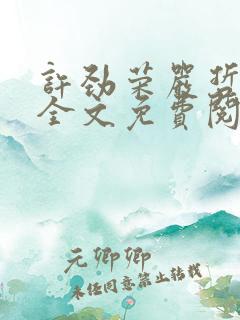 許勁榮嚴折
全文免費閱
元卿卿
未經同意禁止轉載